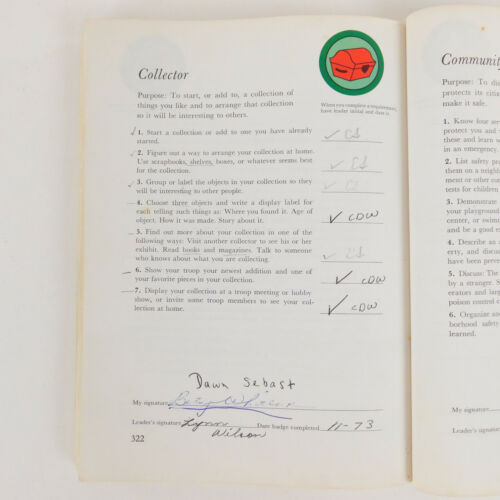 Collector
Purpose: To start, or add to, a collection of
things you like and to arrange that collection
so it will be interesting to others.
When you complete a requirement,
have leader initial and date it.
✓ 1. Start a collection or add to one you have already
started.
✓ 2. Figure out a way to arrange your collection at home.
Use scrapbooks, shelves, boxes, or whatever seems best
for the collection.
✓ 3. Group or label the objects in your collection so they
will be interesting to other people.
4. Choose three objects and write a display label for
each telling such things as: Where you found it. Age of
object. How it was made. Story about it.
✓ CDW
5. Find out more about your collection in one of the
following ways: Visit another collector to see his or her
exhibit. Read books and magazines. Talk to someone
who knows about what you are collecting.
6. Show your troop your newest addition and one of
your favorite pieces in your collection.
✓ CDW
7. Display your collection at a troop meeting or hobby
show, or invite some troop members to see your col-
lection at home.
✓ CDW
Dawn Sebast
My signature
Leader's signature Lynn Wilson Date badge completed 11-73
322
Community
Purpose: To
protects its
make it safe.
1. Know four
protect you and
these and learn
in an emergency.
2. List safety
them on a
ment or other
tests for children
3. Demonstrate
your playground
center, or
and be a good
4. Describe an
erty, and
have been
5. Discuss: The
by a stranger.
erators and
poison control
6. Organize
borhood safety
learned.
My signature
Leader's